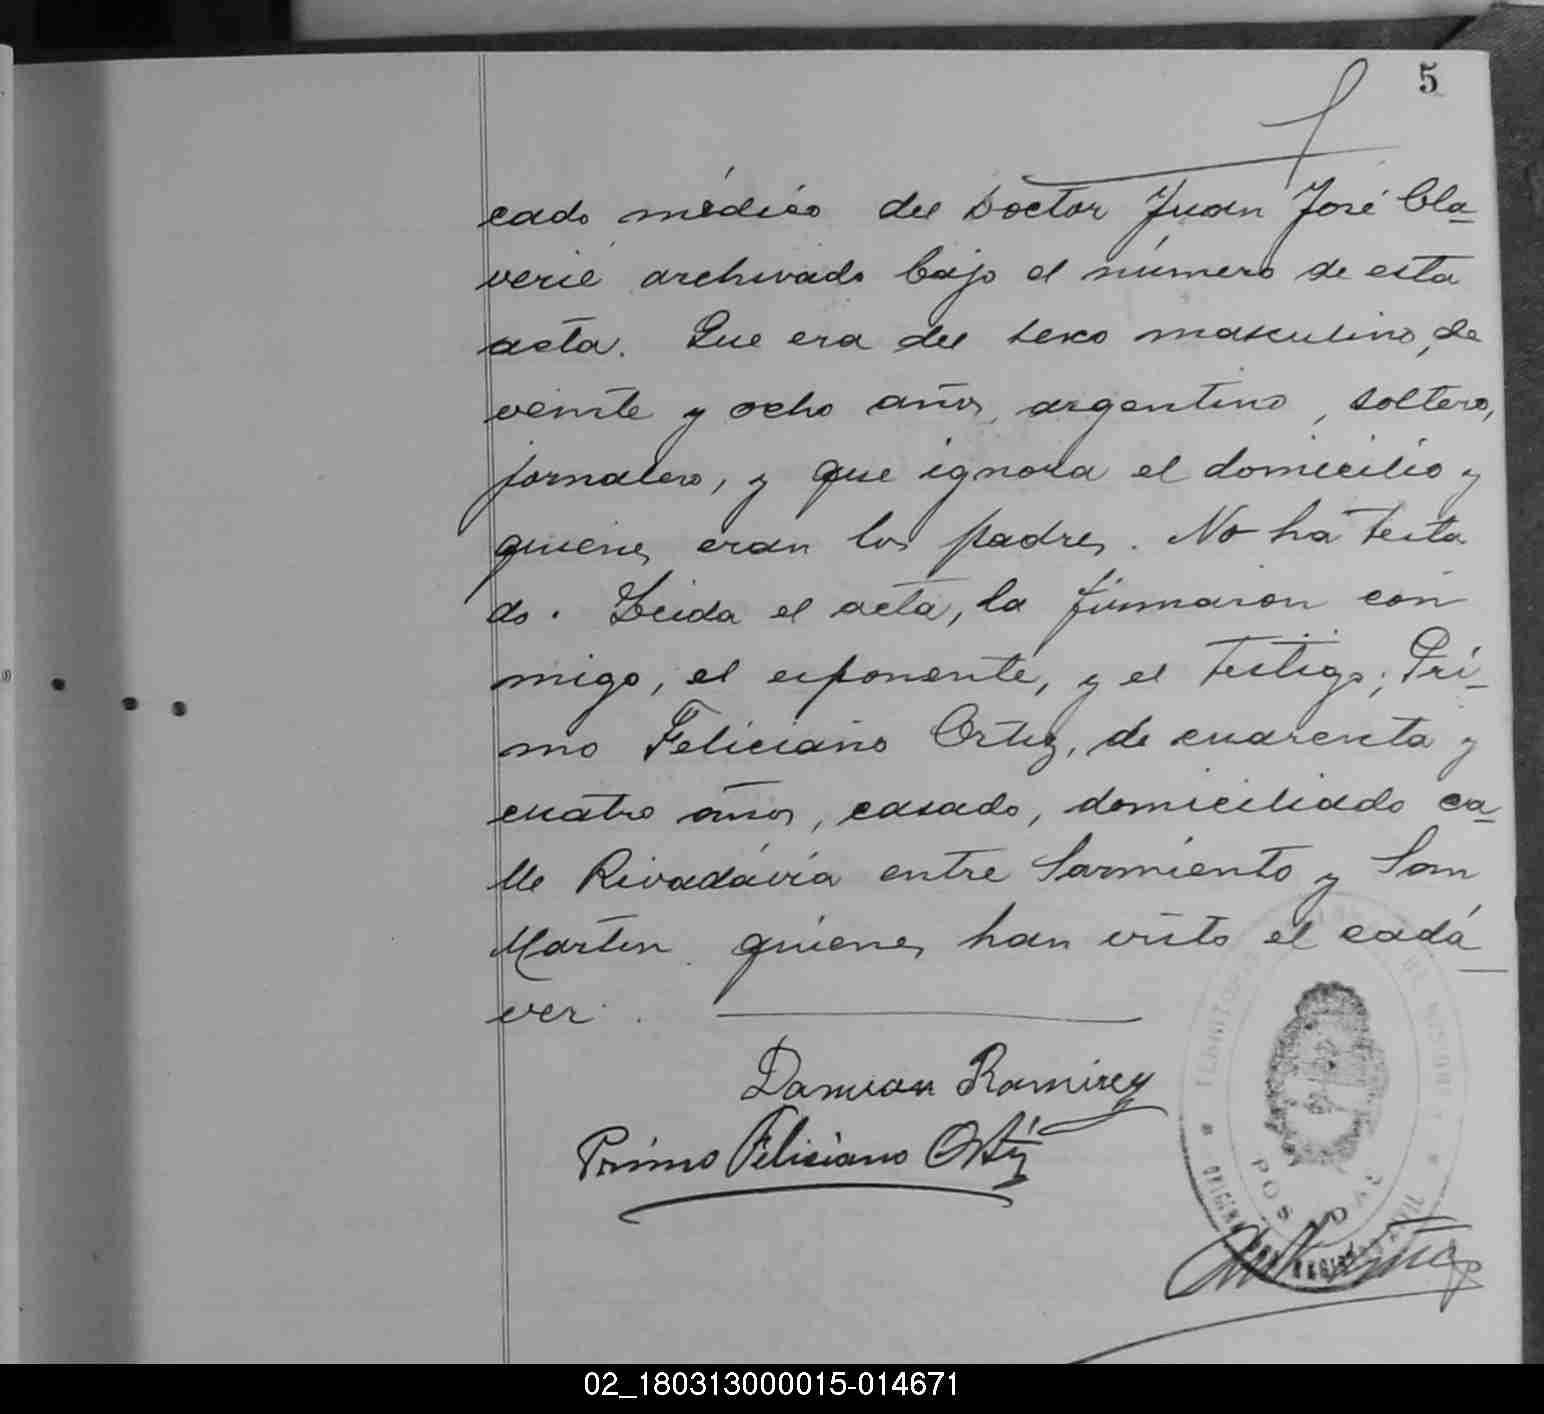 5
cado médico del Doctor Juan José Cla-
verie archivado bajo el número de esta
acta. Que era del sexo masculino, de
veinte y ocho años, argentino, soltero,
jornalero, y que ignora el domicilio y
quienes eran los padres. No ha testa
do. Leida el acta, la firmaron con
migo, el exponente, y el testigo; Pri-
mo Feliciano Ortiz, de cuarenta y
cuatro años, casado, domiciliado ca-
lle Rivadavia entre Sarmiento y San
Martin quienes han visto el cadá
ver.
Damian Ramirez
Primo Feliciano Ortiz
POSADAS
02_180313000015-014671